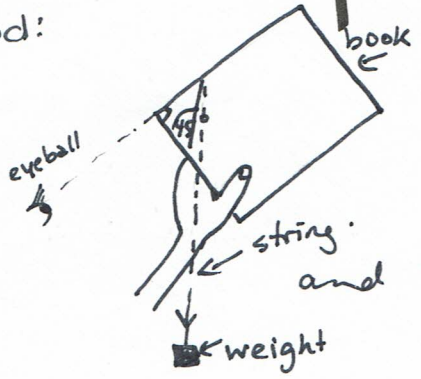 od:
book
45
eyeball
string.
and
weight